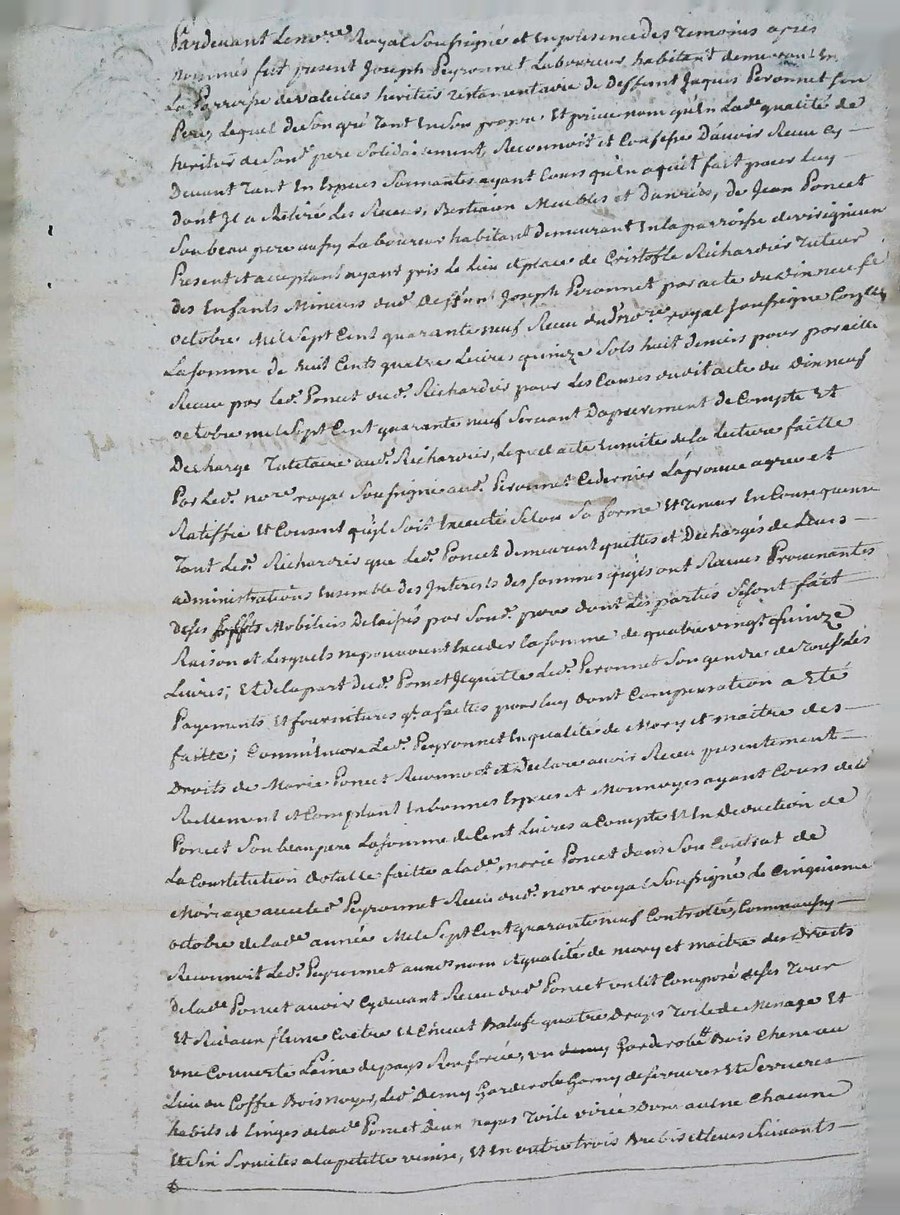 Pardevant Le no.re Royal Soussigné et En presence des Temoins apres
nommés fut present Joseph Peyronnet Laboureur habitant demeurant En
La Parroisse de heritier Testamentaire de Deffunt Jaques Peronnet Son
Pere, Lequel de Son gré Tant En Son propre Et privé nom qu'En Lad.e qualité de
heritier de Sond.t pere Solidairement, Reconnoit et Confesse D'avoir Receu Cy
Devant Tant En Especes Sonnantes ayant Cours qu'En aquit fait pour Luy
dont Il a Retiré Les Receus, Bestiaux Meubles et Danrées, de Jean Poncet
Son beau pere aussy Laboureur habitant demeurant En la parroisse de
Present et acceptant ayant pris Le Lieu et place de Cristofle Richardier Tuteur
des Enfants Mineurs dud.t Deffunt Joseph Peronnet par acte du Dixneuf.e
octobre Mil Sept Cent quarante neuf Receu dud.t no.re royal Soussigné
La Somme de huit Cents quatre Livres quinze Sols huit deniers pour pareille
Receue par led.t Poncet dud.t Richardier pour Les Causes dudit acte du Dixneuf
octobre mil Sept Cent quarante neuf Servant D'apurement de Compte Et
Decharge Tutelaire aud.t Richardier, Lequel acte Ensuite de la Lecture faitte
Par Led.t no.re royal Soussigné aud.t Peronnet Ce dernier L'aprouve agrée et
Ratiffie Et Consent qu'il Soit Executé Selon Sa forme Et Teneur En Consequence
Tant Led.t Richardier que Led.t Poncet demeurent quittes et Dechargés de Leurs
administrations Ensemble des Interets des Sommes qu'ils ont Receues Provenantes
de Ses Effets Mobiliers Delaissés par Sond.t pere dont Les parties Se Sont fait
Raison et Lesquels ne pouvoient Exceder la Somme de quatre vingt quinze
Livres; Et de la part dud.t Poncet Il quitte Led.t Peronnet Son gendre de Tous Les
Payements Et fournitures q.l a faittes pour luy dont Compensation a Eté
faitte; Comm'Encore Led.t Peyronnet En qualité de Mary et maitre des
Droits de Marie Poncet Reconnoit et Declare avoir Receu presentement
Reellement et Comptant En bonnes Especes et Monnoyes ayant Cours dud.t
Poncet Son beau pere La Somme de Cent Livres a Compte Et En Deduction de
La Constitution dotalle faitte a lad.e marie Poncet dans Son Contrat de
Mariage avec led.t Peyronnet Receu dud.t no.re royal Soussigné Le Cinquieme
octobre de lad.e année Mil Sept Cent quarante neuf Controllé, Comm'aussy
Reconnoit Led.t Peyronnet aux.es nom et qualité de mary et maitre des Droits
de lad.e Poncet avoir Cy devant Receu dud.t Poncet un lit Composé de Ses Tour
Et Rideaux flune Coëtre Et Cuissin Balufe quatre Draps Toile de Menage Et
une Couverte Laine de pays Renforcée, un demy Garderobe Bois Chene au
Lieu du Coffre Bois noyer, Led.t Demy Garderobe Garny de ferrures Et Serrures
habits et Linges de lad.e Poncet Deux Toile D'une aulne Chacune
Et Six Serviettes a la petite venise, Et En outre trois Brebis et leurs Suivants